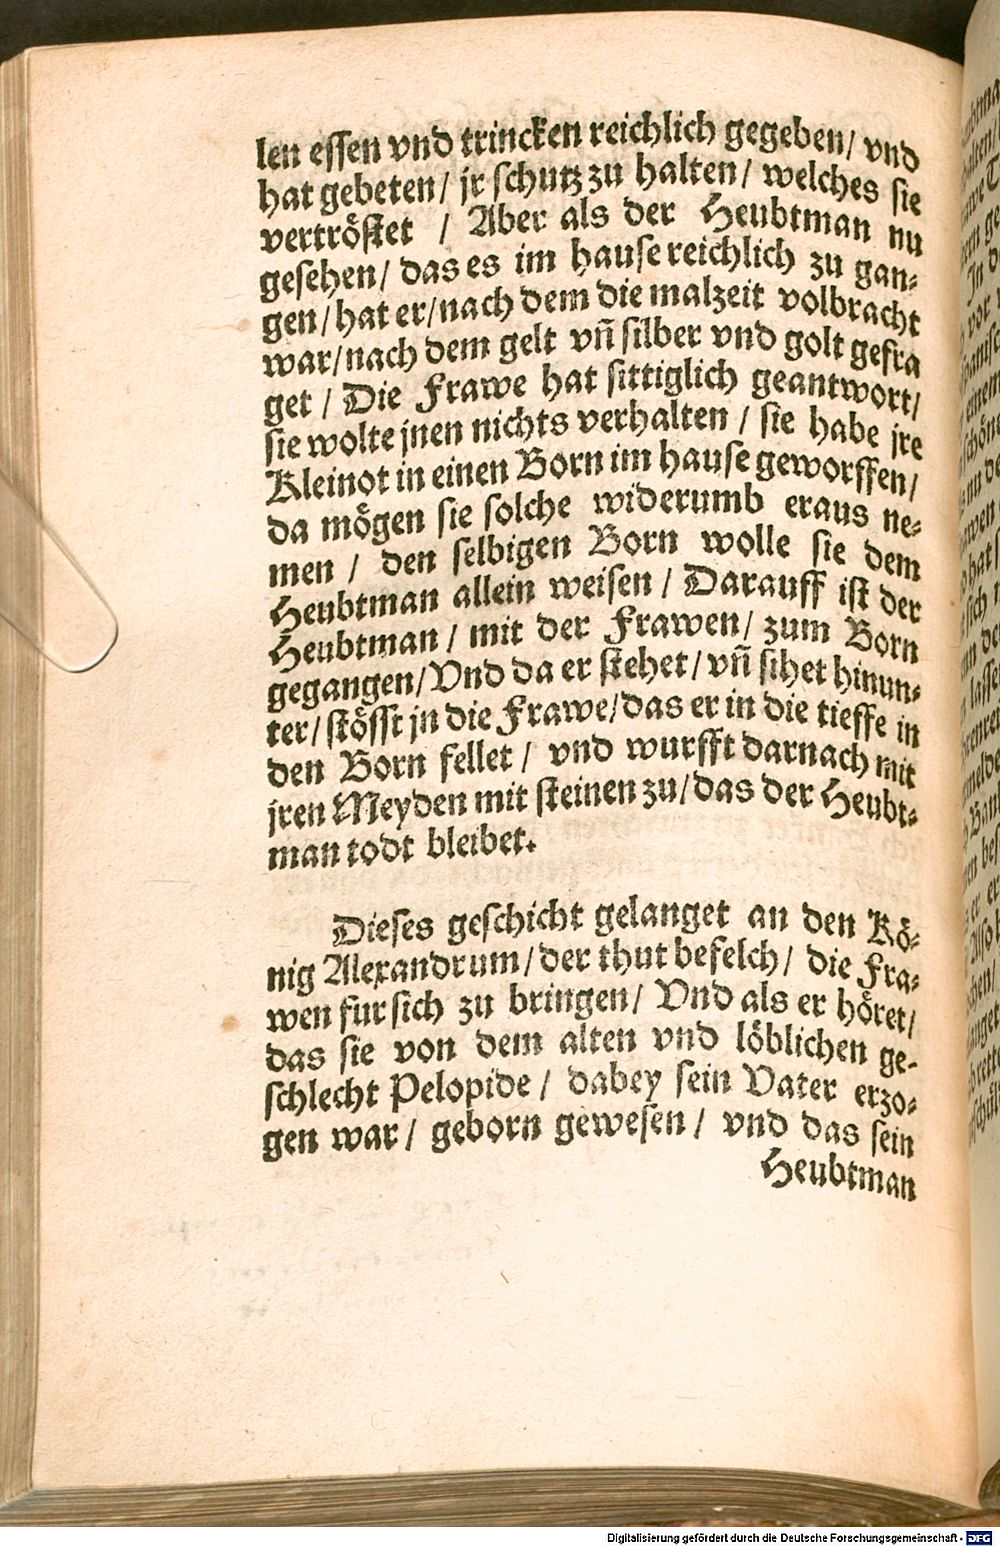 len essen vnd trincken reichlich gegeben/ vnd
hat gebeten/ jr schutz zu halten/ welches sie
vertröstet / Aber als der Heubtman nu
gesehen/ das es im hause reichlich zu gan⸗
gen/ hat er/ nach dem die malzeit volbracht
war/ nach dem gelt vñ silber vnd golt gefra
get / Die Frawe hat sittiglich geantwort/
sie wolte jnen nichts verhalten / sie habe jre
Kleinot in einen Born im hause geworffen/
da mögen sie solche widerumb eraus ne⸗
men / den selbigen Born wolle sie dem
Heubtman allein weisen / Darauff ist der
Heubtman / mit der Frawen/ zum Born
gegangen/ Vnd da er stehet/ vñ sihet hinun⸗
ter/ stösst jn die Frawe/ das er in die tieffe in
den Born fellet / vnd wurfft darnach mit
jren Meyden mit steinen zu/ das der Heubt⸗
man todt bleibet.
Dieses geschicht gelanget an den Kö⸗
nig Alexandrum/ der thut befelch/ die Fra⸗
wen fur sich zu bringen/ Vnd als er höret/
das sie von dem alten vnd löblichen ge⸗
schlecht Pelopide / dabey sein Vater erzo⸗
gen war/ geborn gewesen/ vnd das sein
Heubtman
Digitalisierung gefördert durch die Deutsche Forschungsgemeinschaft - DFG